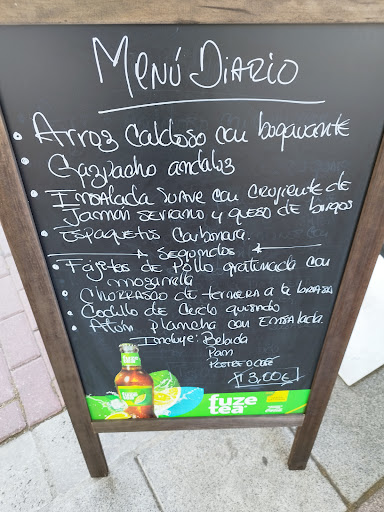 Menú Diario
• Arroz caldoso con bogavante
• Gazpacho andaluz
• Ensalada suave con crujiente de
Jamon serrano y queso de burgos
• Espaguetis Carbonara.
Segundos
• Fajitas de Pollo gratinada con
mozarella
• Churrasco de ternera a la brasa
• Codillo de Cerdo
• Atún plancha con Ensalada
Incluye: Bebida
Pan
Postre o café
13,00€
fuze
tea